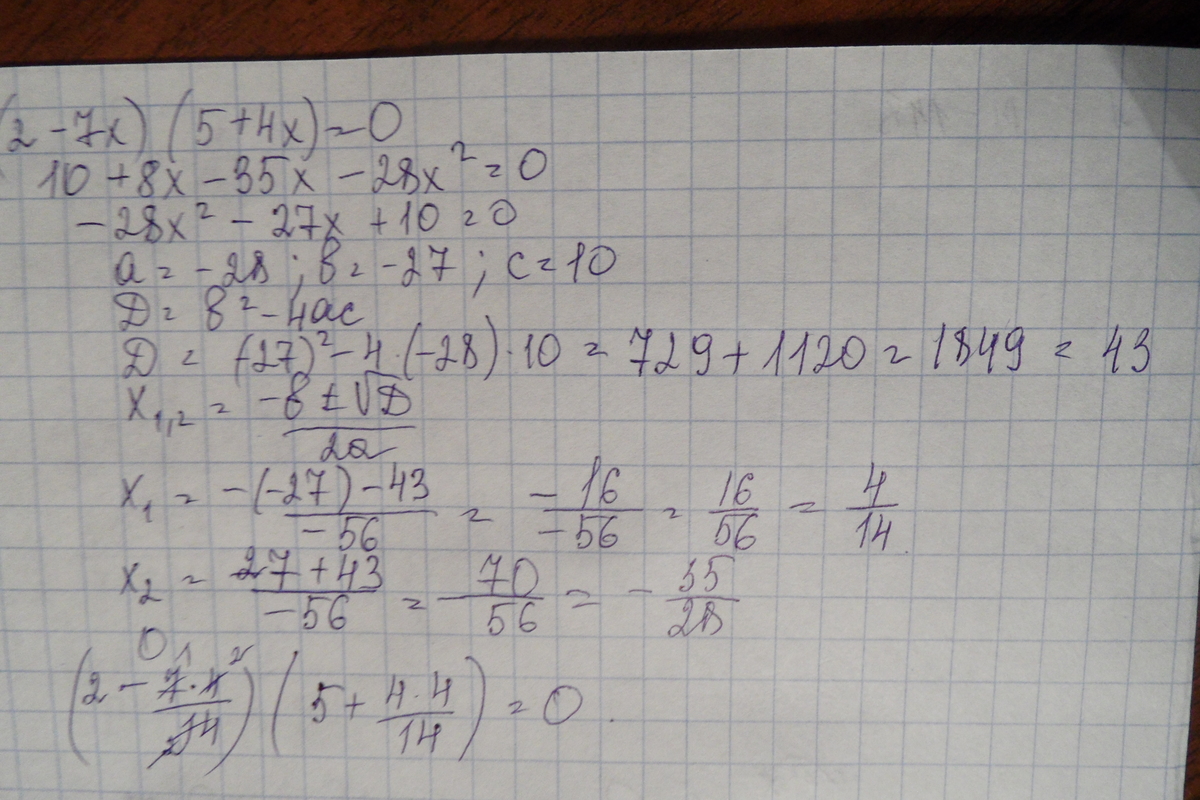 (2 - 7x) (5 + 4x) = 0
10 + 8x - 35x - 28x² = 0
- 28x² - 27x + 10 = 0
a = -28 ; в = -27 ; c = 10
D = в² - 4ac
D = (-27)² - 4·(-28)·10 = 729 + 1120 = 1849 = 43
x₁,₂ = (-в ± √D)/(2a)
x₁ = (-(-27) - 43)/(-56) = (-16)/(-56) = 16/56 = 4/14
x₂ = (27 + 43)/(-56) = - 70/56 = - 35/28
0
(2 - (7·4)/14) (5 + (4·4)/14) = 0.